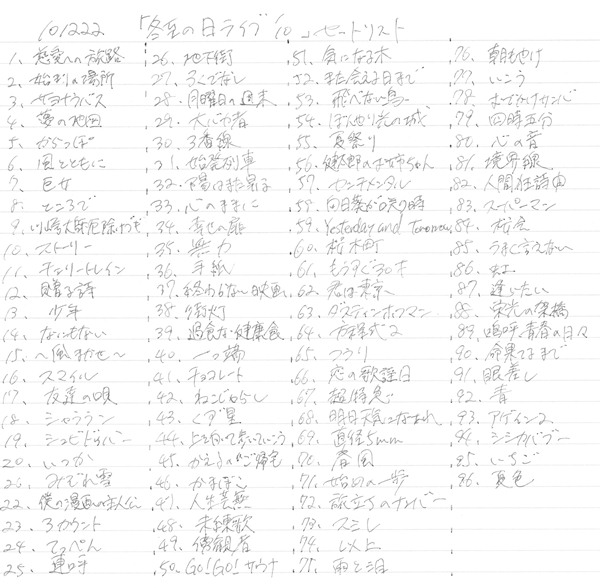 101222 「冬至の日ライブ'10」セットリスト
1、慈愛への旅路
2、始まりの場所
3、サヨナラバス
4、夢の地図
5、からっぽ
6、風とともに
7、巨女
8、ところで
9、川崎大師厄除けナゲキ
10、ストーリー
11、チェリートレイン
12、贈る詩
13、少年
14、なにもない
15、〜風まかせ〜
16、スマイル
17、友達の唄
18、シャララン
19、シュビドゥバー
20、いつか
21、みぞれ雪
22、僕の漫画の主人公
23、3カウント
24、てっぺん
25、連呼
26、地下街
27、ろくでなし
28、月曜日の週末
29、大バカ者
30、3番線
31、始発列車
32、陽はまた昇る
33、心のままに
34、幸せの扉
35、無力
36、手紙
37、終わらない映画
38、街灯
39、過食な健康食
40、一っ端
41、チョコレート
42、ねこじゃらし
43、くず星
44、上を向いて歩いていこう
45、かえるのご帰宅
46、かまぼこ
47、人生芸無
48、未練歌
49、傍観者
50、GO!GO!サウナ
51、気になる木
52、また会える日まで
53、飛べない鳥
54、ほんわり光の城
55、夏祭り
56、健太郎のお姉ちゃん
57、センチメンタル
58、向日葵が咲く時
59、Yesterday and Tomorrow
60、桜木町
61、もうすぐ30才
62、君は東京
63、ダスティンホフマン
64、方程式2
65、つづり
66、恋の歌謡日
67、超特急
68、明日天気になあれ
69、直径5mm
70、春風
71、始めの一歩
72、旅立ちのナンバー
73、スミレ
74、以上
75、雨と泪
76、朝もやけ
77、いこう
78、おでかけサンバ
79、四時五分
80、心の音
81、境界線
82、人間狂詩曲
83、スーパーマン
84、桜会
85、うまく言えない
86、虹
87、逢いたい
88、栄光の架橋
89、嗚呼、青春の日々
90、命果てるまで
91、眼差し
92、青
93、アゲイン2
94、シシカバブー
95、いちご
96、夏色